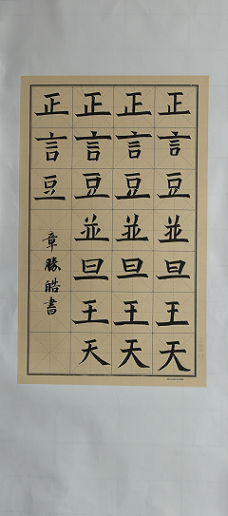 正言豆並曰王天
正言豆並曰王天
正言豆並曰王天
正言豆
章勝皓書